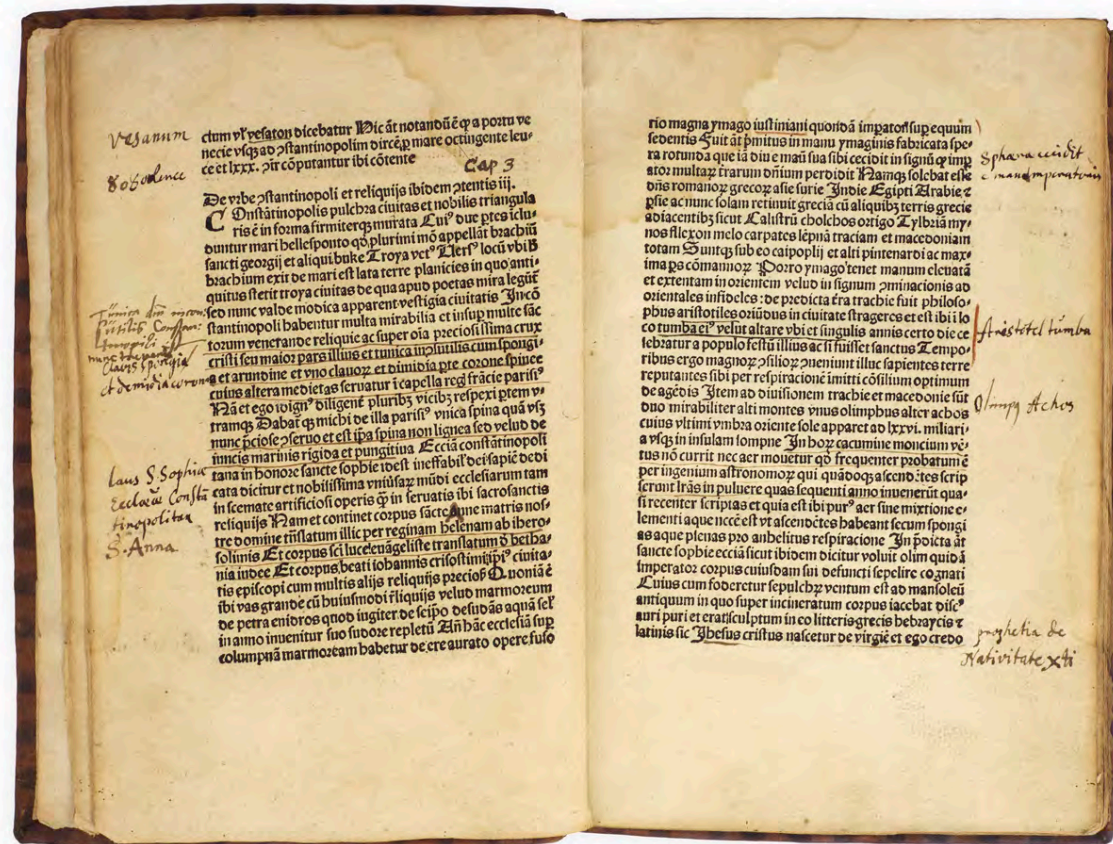 Vesanum
Bobolence
Tunica dni incon:
sutilis Constan:
tinopoli est
nunc
Clavis spongia
et demidia corona
Laus S. Sophiæ
Ecclesiæ Constã
tinopolitan
S. Anna
ctum vľ vesaton dicebatur Hic ãt notandũ ẽ ꝙ a portu ve
necie vsqꝫ ad ↄstantinopolim dircẽ ꝑ mare octingente leu-
ce et lxxx. ↄir cõputantur ibi cõtente
Cap 3
De vrbe ↄstantinopoli et reliquijs ibidem ↄtentis iii.
COnstãtinopolis pulchra ciuitas et nobilis triangula
ris ẽ in forma firmiterqꝫ murata Cuiꝰ due ptes ĩclu-
duntur mari hellesponto qđ plurimi mõ appellãt brachiũ
sancti georgij et aliqui buke Troya vetꝰ Uersꝰ locũ vbi ħ
brachium exit de mari est lata terre planicies in quo anti-
quitus stetit troya ciuitas de qua apud poetas mira legũt
sed nunc valde modica apparent vestigia ciuitatis In cõ
stantinopoli habentur multa mirabilia et insuꝑ multe sãc
torum venerande reliquie ac super oĩa preciosissima crux
cristi seu maior pars illius et tunica incõsutilis cum spongi-
a et arundine et vno clauoꝝ et dimidia ꝑte corone spinee
cuius altera medietas seruatur ĩ capella reg̃ frãcie parisiꝰ
Nã et ego ĩdignꝰ diligent̃ pluribꝫ vicibꝫ respexi ꝑtem v-
tramqꝫ Dabat̃ qꝫ michi de illa parisiꝰ vnica spina quã vsqꝫ
nunc p̃ciose ↄseruo et est ip̃a spina non lignea sed velud de
iuncis marinis rigida et pungitiua Ecc̃ia constãtinopoli
tana in honore sancte sophie idest ineffabiľ dei sapiẽ dedi
cata dicitur et nobilissima vniũsaꝝ mũdi ecclesiarum tam
in scemate artificiosi operis ꝙ̃ in seruatis ibi sacrosanctis
reliquijs Nam et continet corpus sãcte Anne matris nos-
tre domine trãslatum illic per reginam helenam ab ihero-
solimis Et corpus sc̃i luce euãgeliste translatum ð betha-
nia iudee Et corpus beati iohannis crisostimi ip̃iꝰ ciuita-
tis episcopi cum multis alijs reliquijs preciosꝭ Quoniã ẽ
ibi vas grande cũ huiusmodi r̃liquijs velud marmoreum
de petra enidros quod iugiter de seip̃o desudãs aquã sel̃
in anno inuenitur suo sudore repletũ Añ hãc ecclesiã suꝑ
columpnã marmoream habetur de ere aurato opere fuso
rio magna ymago iustiniani quondã imꝑatorꝭ suꝑ equum
sedentis Fuit ãt p̃mitus in manu ymaginis fabricata spe-
ra rotunda que iã diu e manu sua sibi cecidit in signũ ꝙ imꝑ
ator multaꝝ t̃rarum dñium perdidit Namqꝫ solebat esse
dñs romanoꝝ grecoꝝ asie surie Indie Egipti Arabie ꝛ
ꝑsie ac nunc solam retinuit greciã cũ aliquibꝫ terris grecie
adiacentibꝫ sicut Calistrũ cholchos ortigo Tylbriã my-
nos flexon melo carpates lẽpnã traciam et macedoniam
totam Suntqꝫ sub eo caipoplij et alti pintenardi ac max-
ima ꝑs cõmannoꝝ Porro ymago tenet manum eleuatã
et extentam in orientem velud in signum ↄminacionis ad
orientales infideles : de predicta t̃ra trachie fuit philoso-
phus aristotiles oriũdus in ciuitate strageres et est ibi ĩ lo
co tumba eiꝰ velut altare vbi et singulis annis certo die ce
lebratur a populo festũ illius ac si fuisset sanctus Tempo-
ribus ergo magnoꝝ ↄsilioꝝ ↄueniunt illuc sapientes terre
reputantes sibi per respiracionẽ ĩmitti cõsilium optimum
de agẽdis Item ad diuisionem trachie et macedonie sũt
duo mirabiliter alti montes vnus olimphus alter achos
cuius vltimi vmbra oriente sole apparet ad lxxvi. miliari-
a vsqꝫ in insulam lompne In hoꝝ cacumine moncium vẽ-
tus nõ currit nec aer mouetur qđ frequenter probatum ẽ
per ingenium astronomoꝝ qui quãdoqꝫ ascendẽtes scrip
serunt l̃ras in puluere quas sequenti anno inuenerũt qua-
si recenter scriptas et quia est ibi purꝰ aer sine mixtione e-
lementi aque nec̃e est vt ascendẽtes habeant secum spongi
as aque plenas pro anhelitus respiracione In p̃dicta ãt
sancte sophie ecc̃ia sicut ibidem dicitur voluit olim quidã
imperator corpus cuiusdam sui defuncti sepelire cognati
Cuius cum foderetur sepulchꝝ ventum est ad mansoleũ
antiquum in quo super incineratum corpus iacebat discꝰ
auri puri et erat sculptum in eo litteris grecis hebraycis ꝛ
latinis sic Ihesus cristus nascetur de virgĩe et ego credo
Sphæra cecidit
e manu imperatoris
Aristotel tumba
Olimpꝰ Achos
prophetia de
Nativitate xti